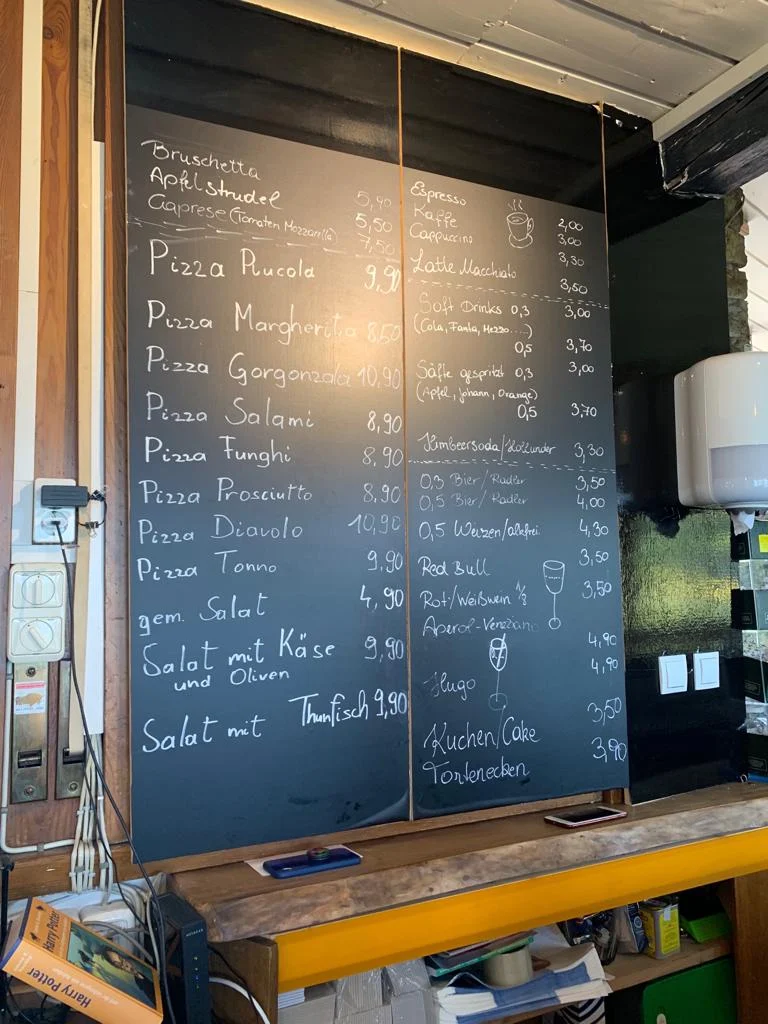 Bruschetta 5,90
Apfelstrudel 5,50
Caprese (Tomaten Mozzarella) 7,50
Pizza Rucola 9,90
Pizza Margherita 8,50
Pizza Gorgonzola 10,90
Pizza Salami 8,90
Pizza Funghi 8,90
Pizza Prosciutto 8,90
Pizza Diavolo 10,90
Pizza Tonno 9,90
gem. Salat 4,90
Salat mit Käse 9,90
und Oliven
Salat mit Thunfisch 9,90
Espresso 2,00
Kaffe 3,00
Cappuccino 3,30
Latte Macchiato 3,50
Soft Drinks 0,3 3,00
(Cola, Fanta, Mezzo....)
0,5 3,70
Säfte gespritzt 0,3 3,00
(Apfel, Johann, Orange)
0,5 3,70
Himbeersoda/Hollunder 3,30
0,3 Bier/Radler 3,50
0,5 Bier/Radler 4,00
0,5 Weizen/alkfrei 4,30
Red Bull 3,50
Rot/Weißwein 1/8 3,50
Aperol-Veneziano 4,90
Hugo 4,90
Kuchen/Cake 3,50
Tortenecken 3,90
Harry Potter
Harry Potter
NETGEAR